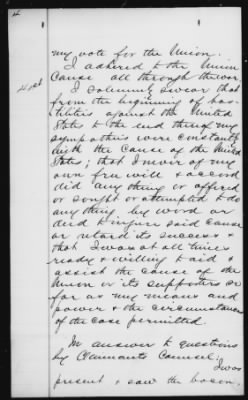 4
my vote for the Union.
I adhered to the Union
Cause all through the war
40st
I solemnly swear that
from the beginning of hos-
tilities against the United
States to the end thereof my
sympathies were constantly
with the cause of the United
States; that I never of my
own free will & accord
did any thing or offered
or sought or attempted to do
any thing by word or
deed to injure said cause
or retard its success &
that I was at all times
ready & willing to aid &
assist the cause of the
Union or its supporters so
far as my means and
power & the circumstances
of the case permitted.
In answer to questions
by Claimants Counsel:
I was
present & saw the bacon.